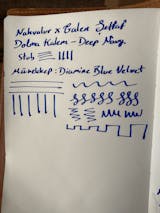 Nahvalur x Galen Şellaf
Dolma Kalem - Deep Navy.
Stub
Mürekkep: Diamine Blue Velvet